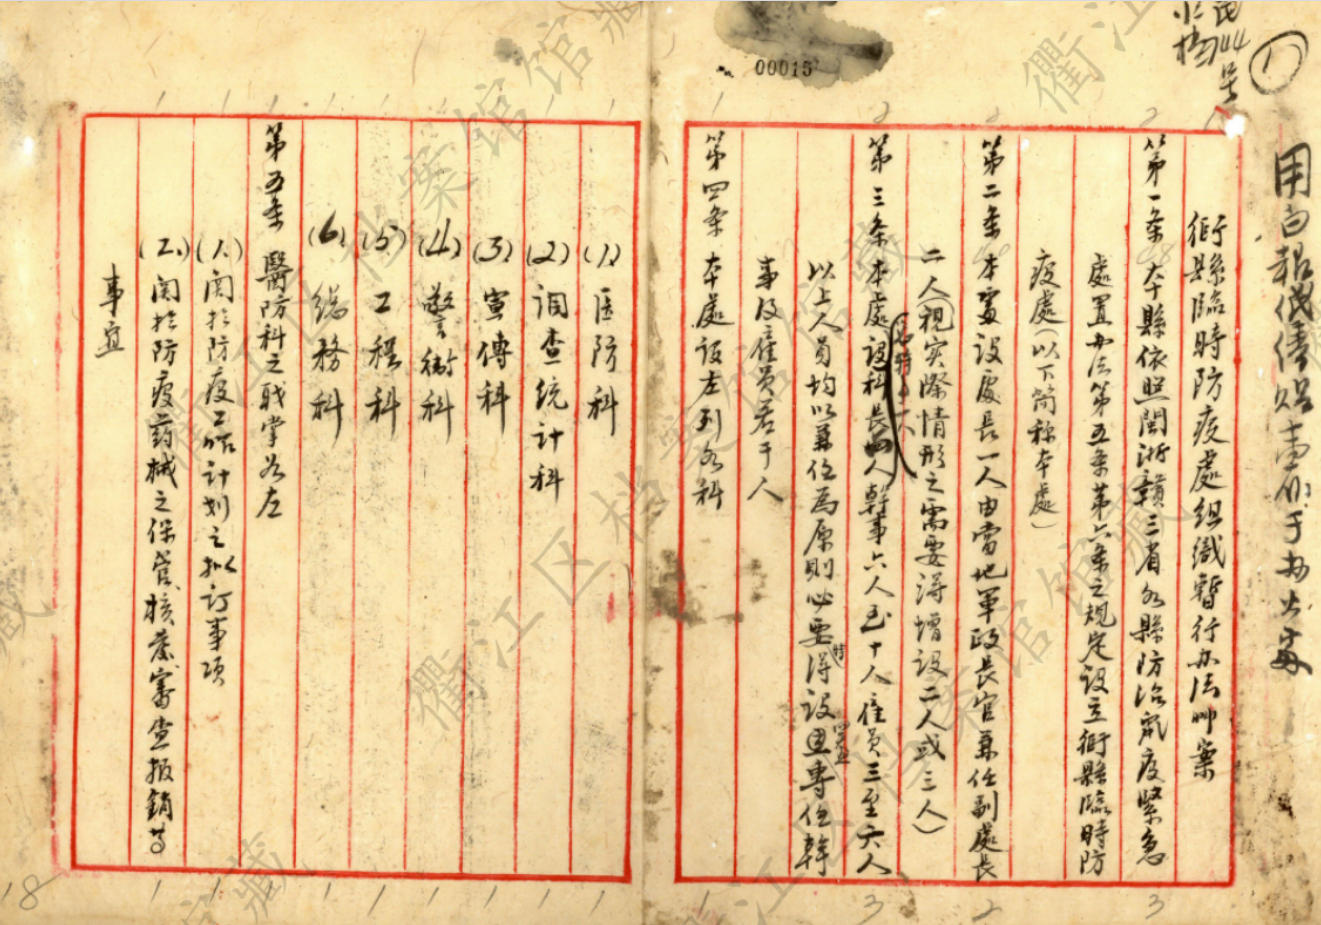 ①
00015
衢縣臨時防疫處組織暫行办法草案
第一条 本縣依照閩浙贛三省各縣防治鼠疫緊急
處置办法第五条第六条之規定設立衢縣臨時防
疫處(以下简称本處)
第二条 本處設處長一人由當地軍政長官兼任副處長
二人(視实際情形之需要得增設二人或三人)
第三条 本處設科長四人幹事六人至十人雇員三至六人
以上人員均以兼任為原則必要時得設置專任幹
事及雇員若干人
第四条 本處设左列各科
(1)医防科
(2)调查统计科
(3)宣傳科
(4)警衛科
(5)工程科
(6)總務科
第五条 醫防科之职掌如左
(1)関於防疫工作计划之拟订事項
(2)関於防疫药械之保管、核发審查报銷等
事宜
18
衢江区档案馆馆藏